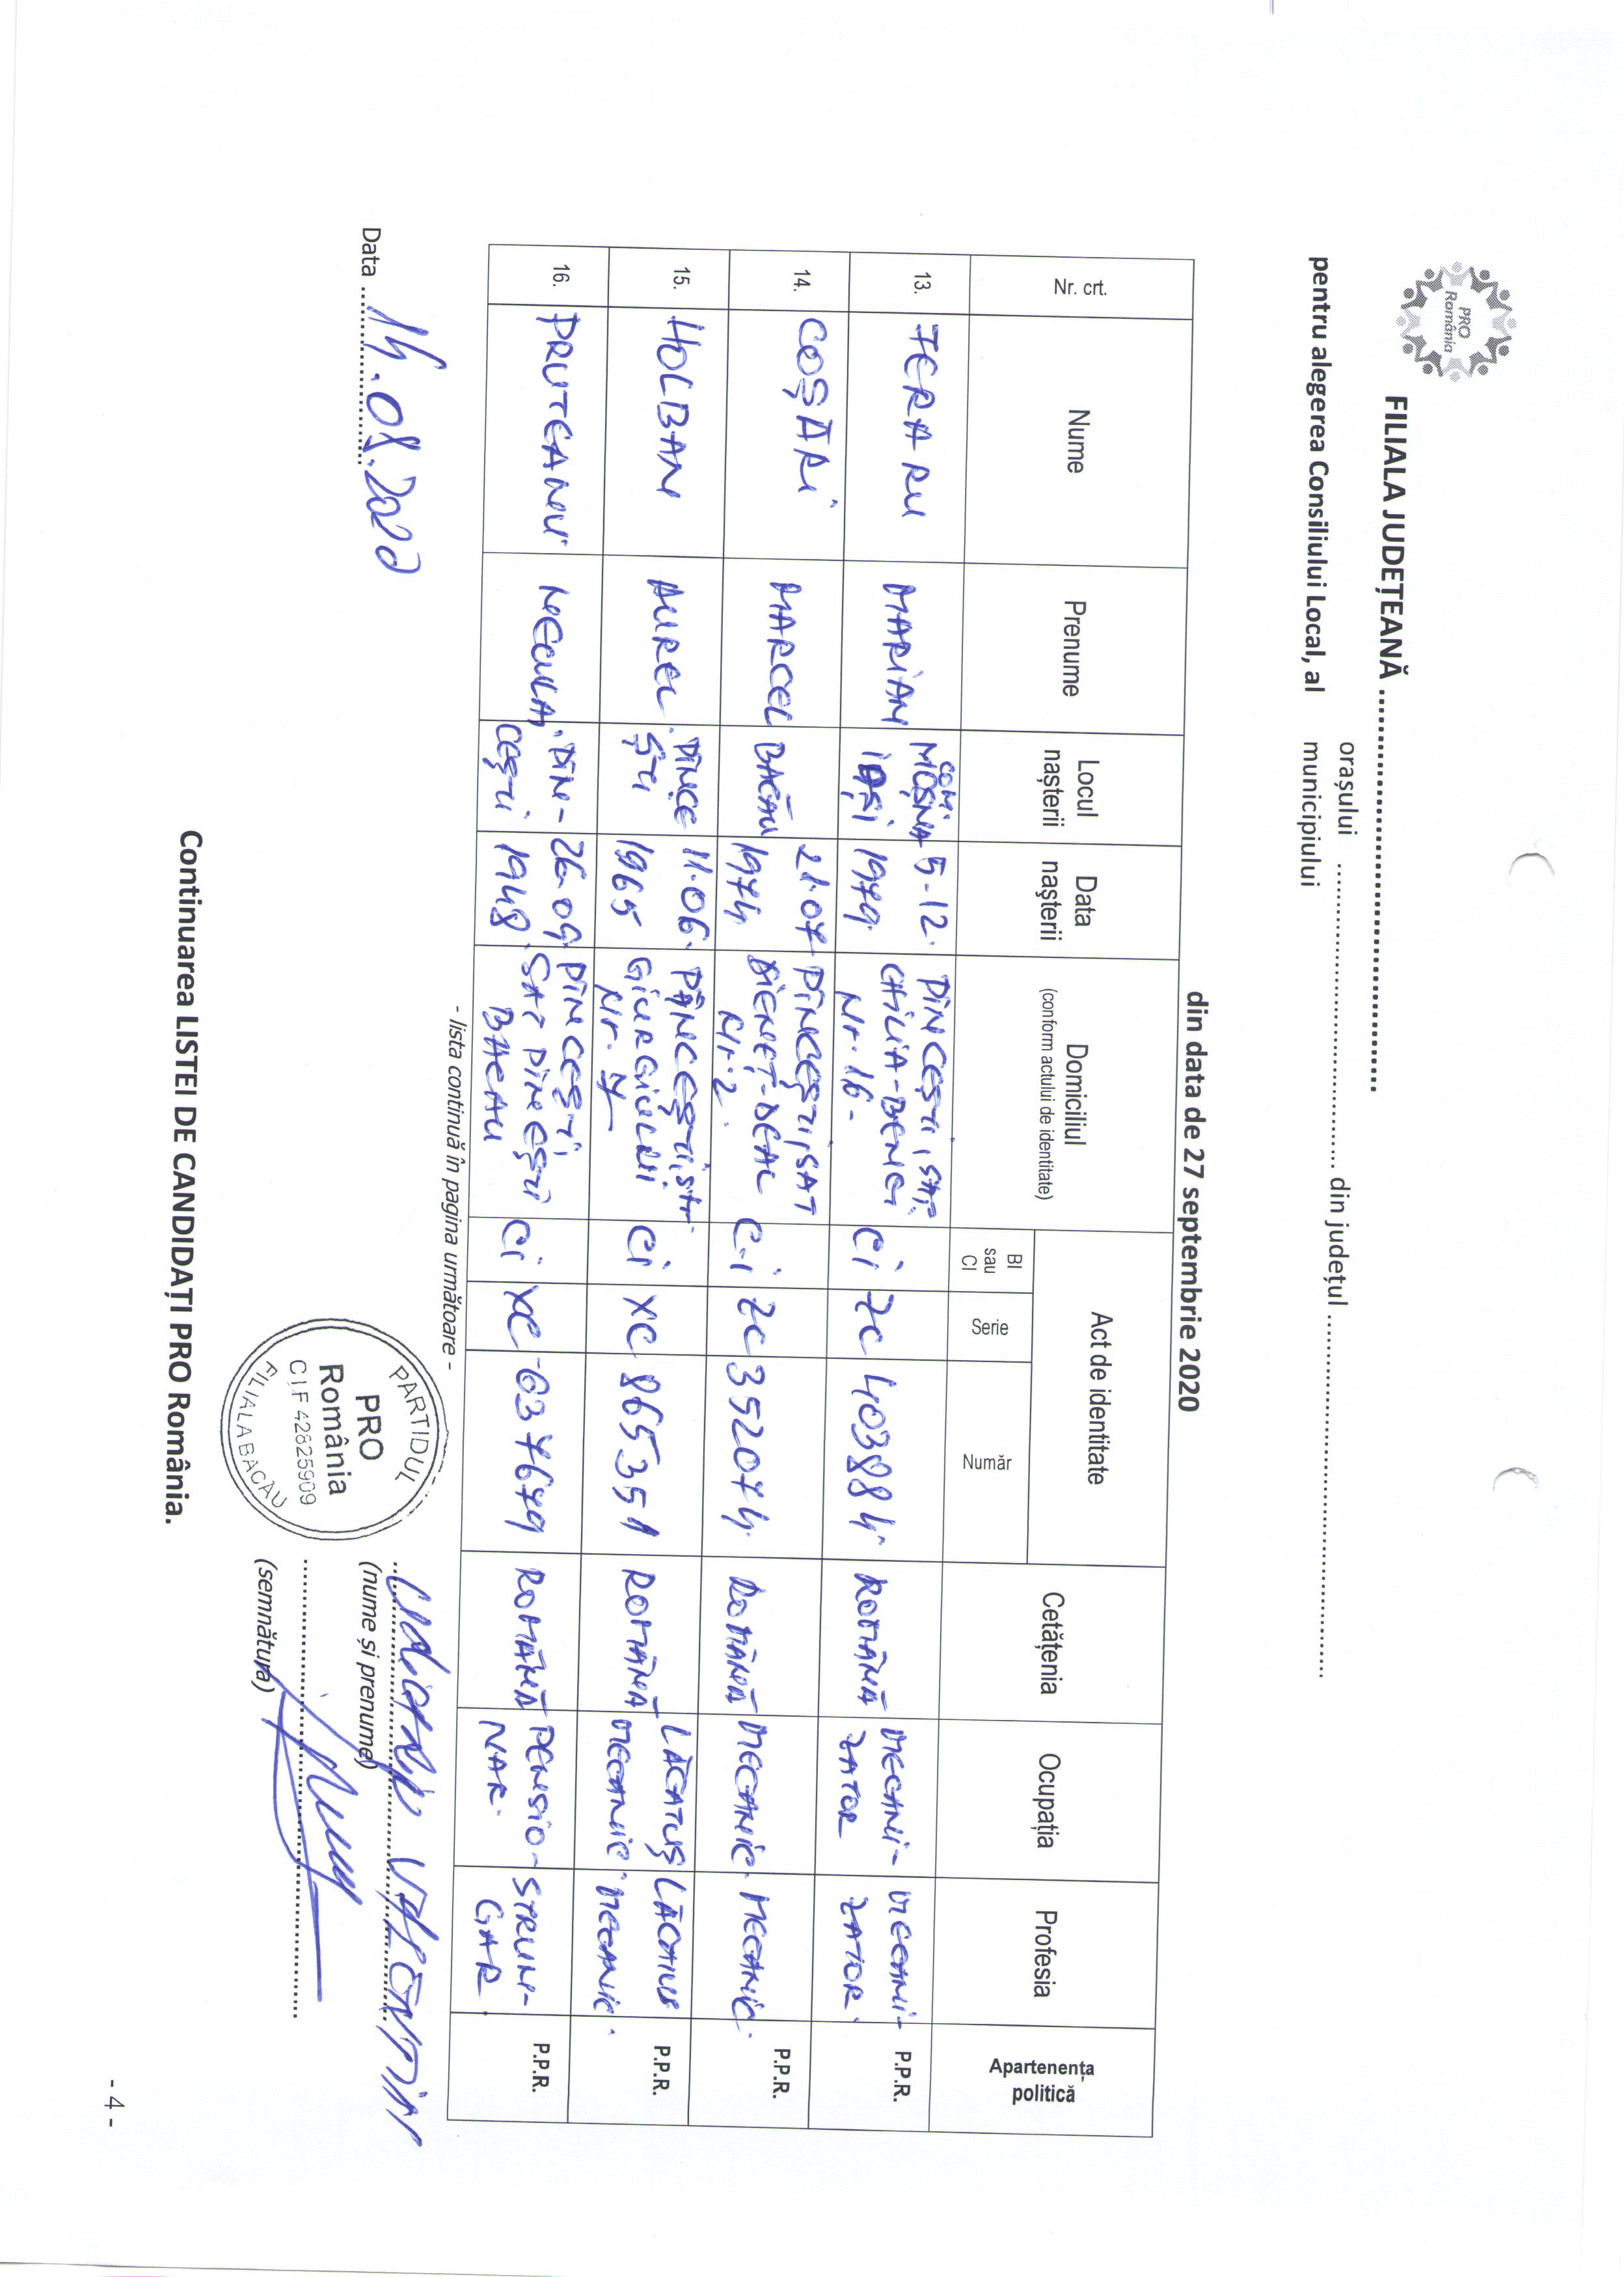 PRO
România
FILIALA JUDEȚEANĂ ....................................................
orașului
pentru alegerea Consiliului Local, al municipiului .................................................. din județul ..................................................
din data de 27 septembrie 2020
Nr. crt. Nume Prenume Locul nașterii Data nașterii Domiciliul (conform actului de identitate) Act de identitate Cetățenia Ocupația Profesia Apartenența politică
BI sau CI Serie Număr
13. MARIAN COM MOȘNA IAȘI 5.12. 1979 PÎNCEȘTI, SAT. CHILIA-BENEI Nr. 16 - Ci ZC 403884 ROMÂNĂ MECANI-ZATOR MECANI-ZATOR. P.P.R.
14. COȘĂRI MARCEL BACĂU 21.07 1974 PÎNCEȘTI, SAT DIENEȚ-DEAL Nr. 2. C.i ZC 352074 ROMÂNĂ MECANIC. MECANIC. P.P.R.
15. HOLBAN AUREL PÎNCEȘTI 11.06. 1965 PÂNCEȘTI, str. Nr. 7 Ci XC 865351 ROMÂNĂ LĂCĂTUȘ MECANIC. LĂCĂTUȘ MECANIC. P.P.R.
16. PRUTEANU NECULAI. PÎN-CEȘTI 26.09 1948. PÎNCEȘTI SAT PÎNCEȘTI BACAU Ci XC 637679 ROMÂNĂ PENSIO-NAR. STRUN-GAR. P.P.R.
- lista continuă în pagina următoare -
Data 14.08.2020
VALENTIN
(nume și prenume)
(semnătura)
PARTIDUL
PRO
România
CIF 42825909
FILIALA BACĂU
Continuarea LISTEI DE CANDIDAȚI PRO România.
- 4 -